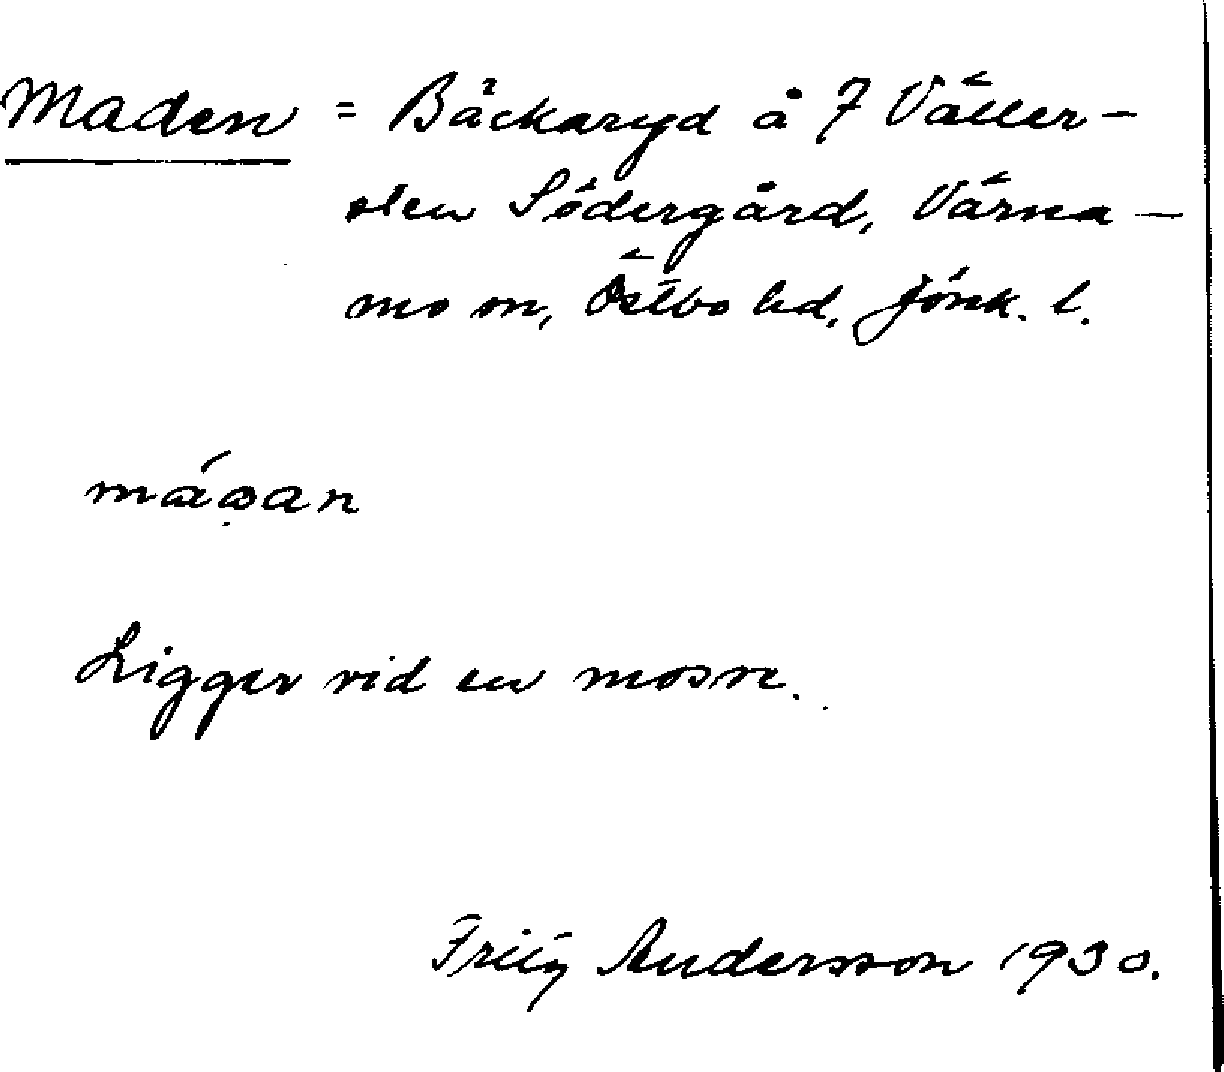 Maden = Bäckaryd å 7 Väller-
sten Södergård, Värna-
mo sn, Östbo hd, Jönk. l.
Ligger vid en mosse.
Fritz Andersson 1930.